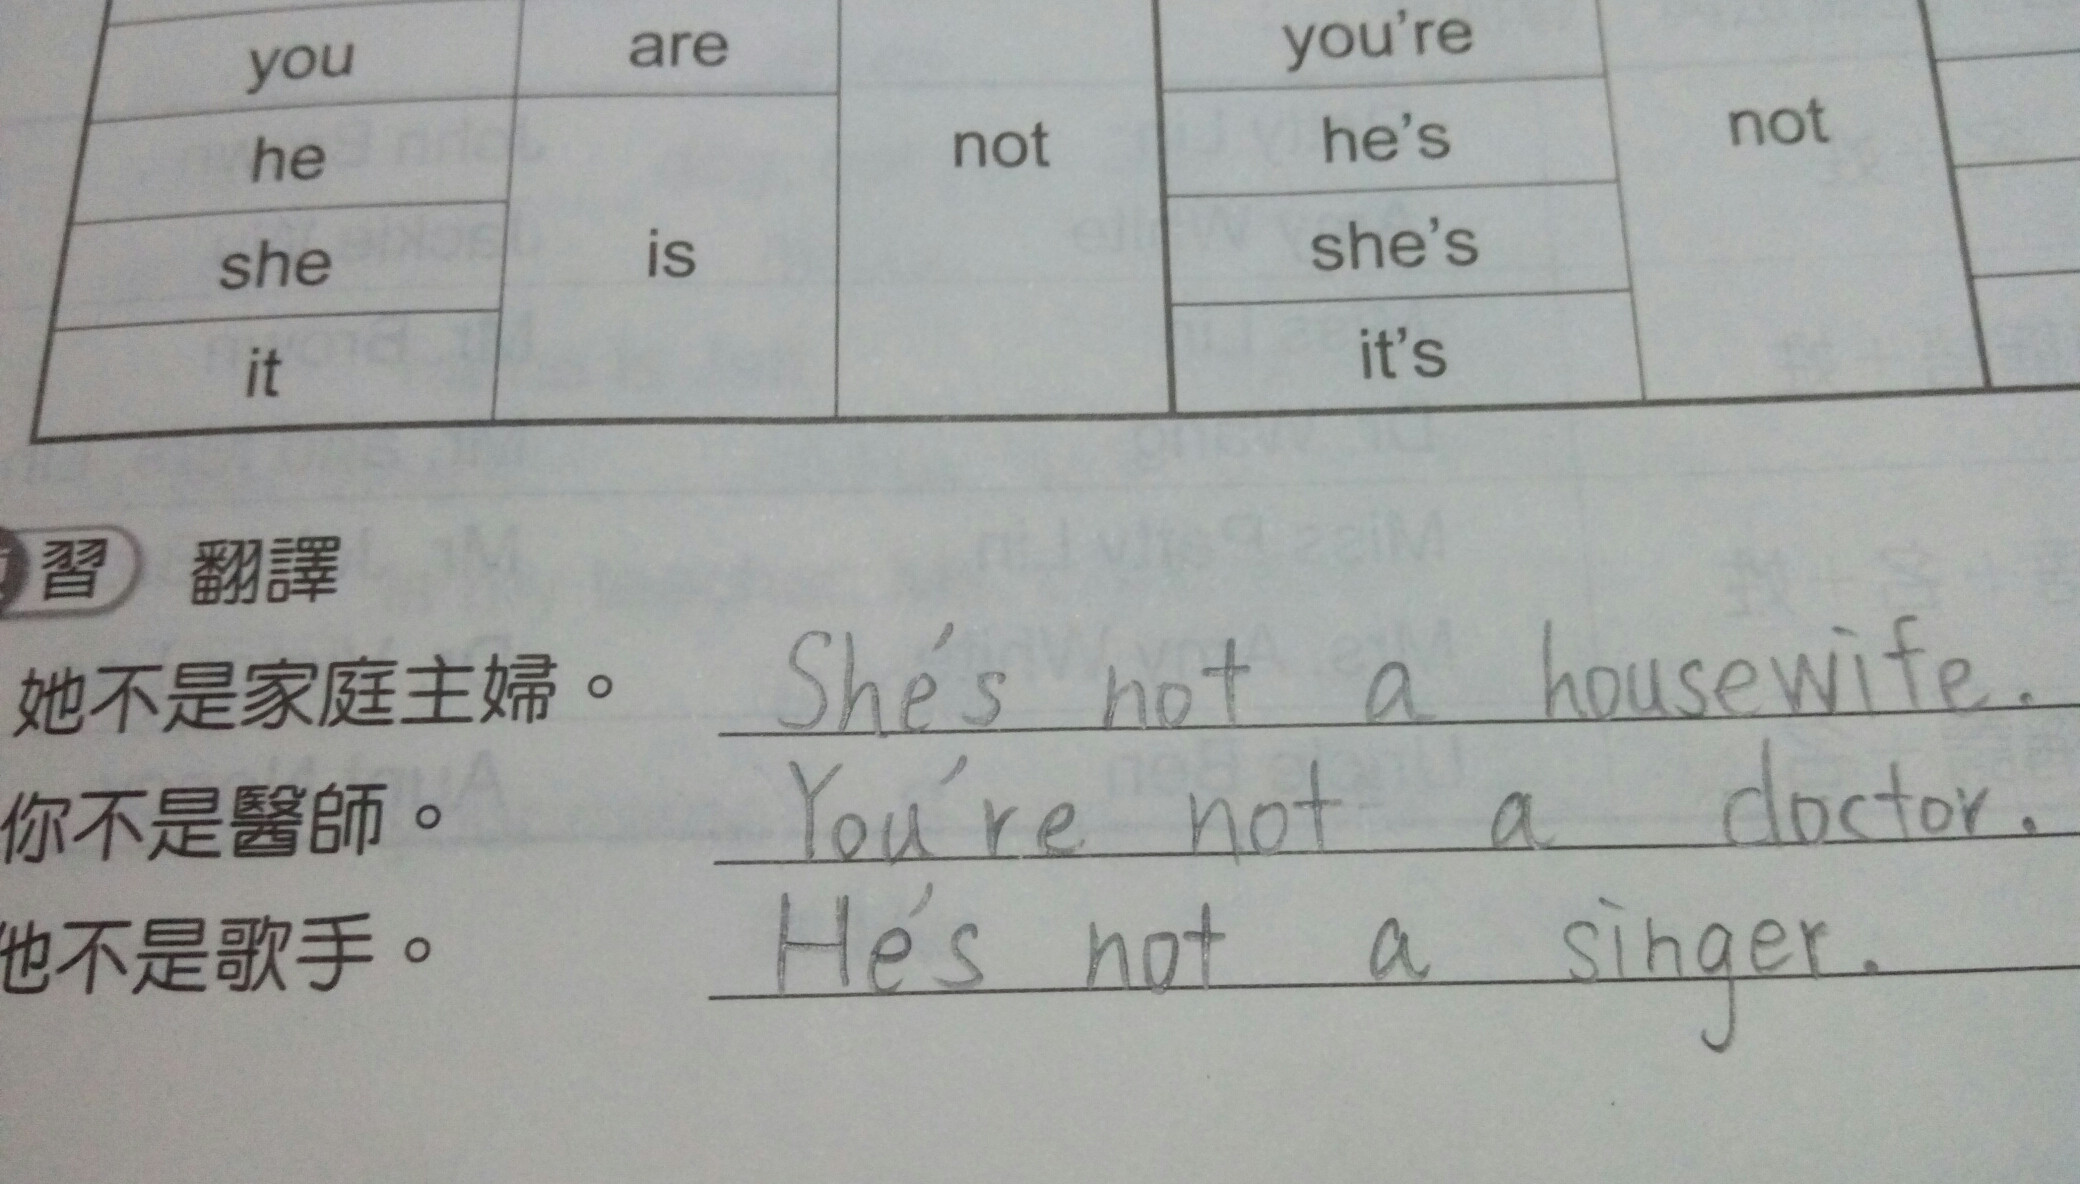 you are you're
he not he's not
she is she's
it it's
習 翻譯
她不是家庭主婦。 She's not a housewife.
你不是醫師。 You're not a doctor.
他不是歌手。 He's not a singer.